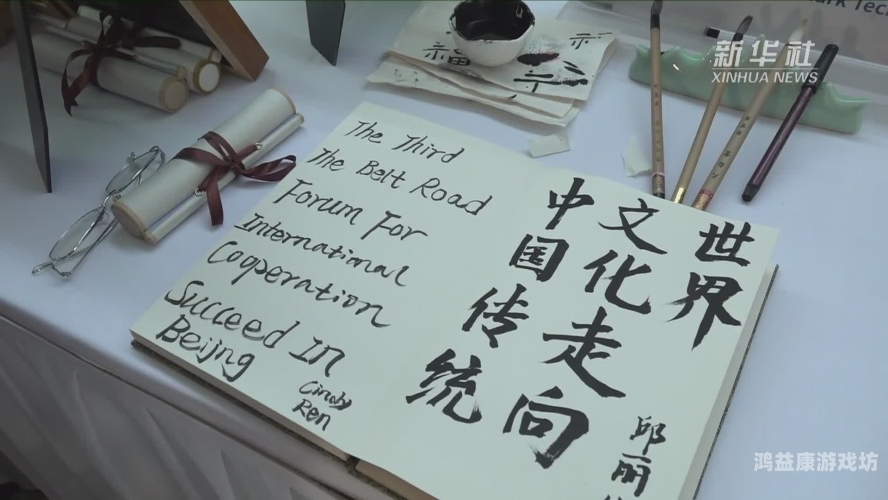 新华社
XINHUA NEWS
福
The Third
The Belt Road
Forum For
International
Cooperation
Succeed In
Beijng
Cindy
Ren
中国传统
文化走向
世界
邱丽
鸿益康游戏坊